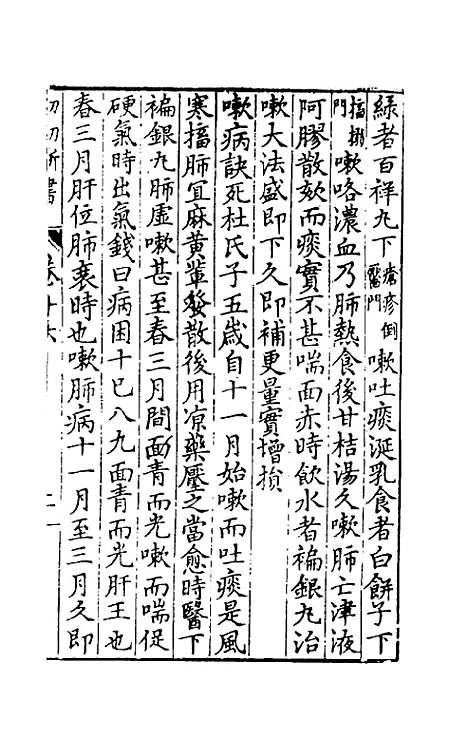 綠者百祥丸下瘡疹倒靨門嗽吐痰涎乳食者白餅子下
搐搦門嗽咯濃血乃肺熱食後甘桔湯久嗽肺亡津液
阿膠散欬而痰實不甚喘面赤時飲水者褊銀丸治
嗽大法盛即下久即補更量實增損
嗽病訣死杜氏子五歲自十一月始嗽而吐痰是風
寒搐肺宜麻黃輩發散後用凉藥壓之當愈時醫下
褊銀丸肺虛嗽甚至春三月間面青而光嗽而喘促
硬氣時出氣錢曰病困十巳八九面青而光肝王也
春三月肝位肺衰時也嗽肺病十一月至三月久即
幼幼新書
卷十六